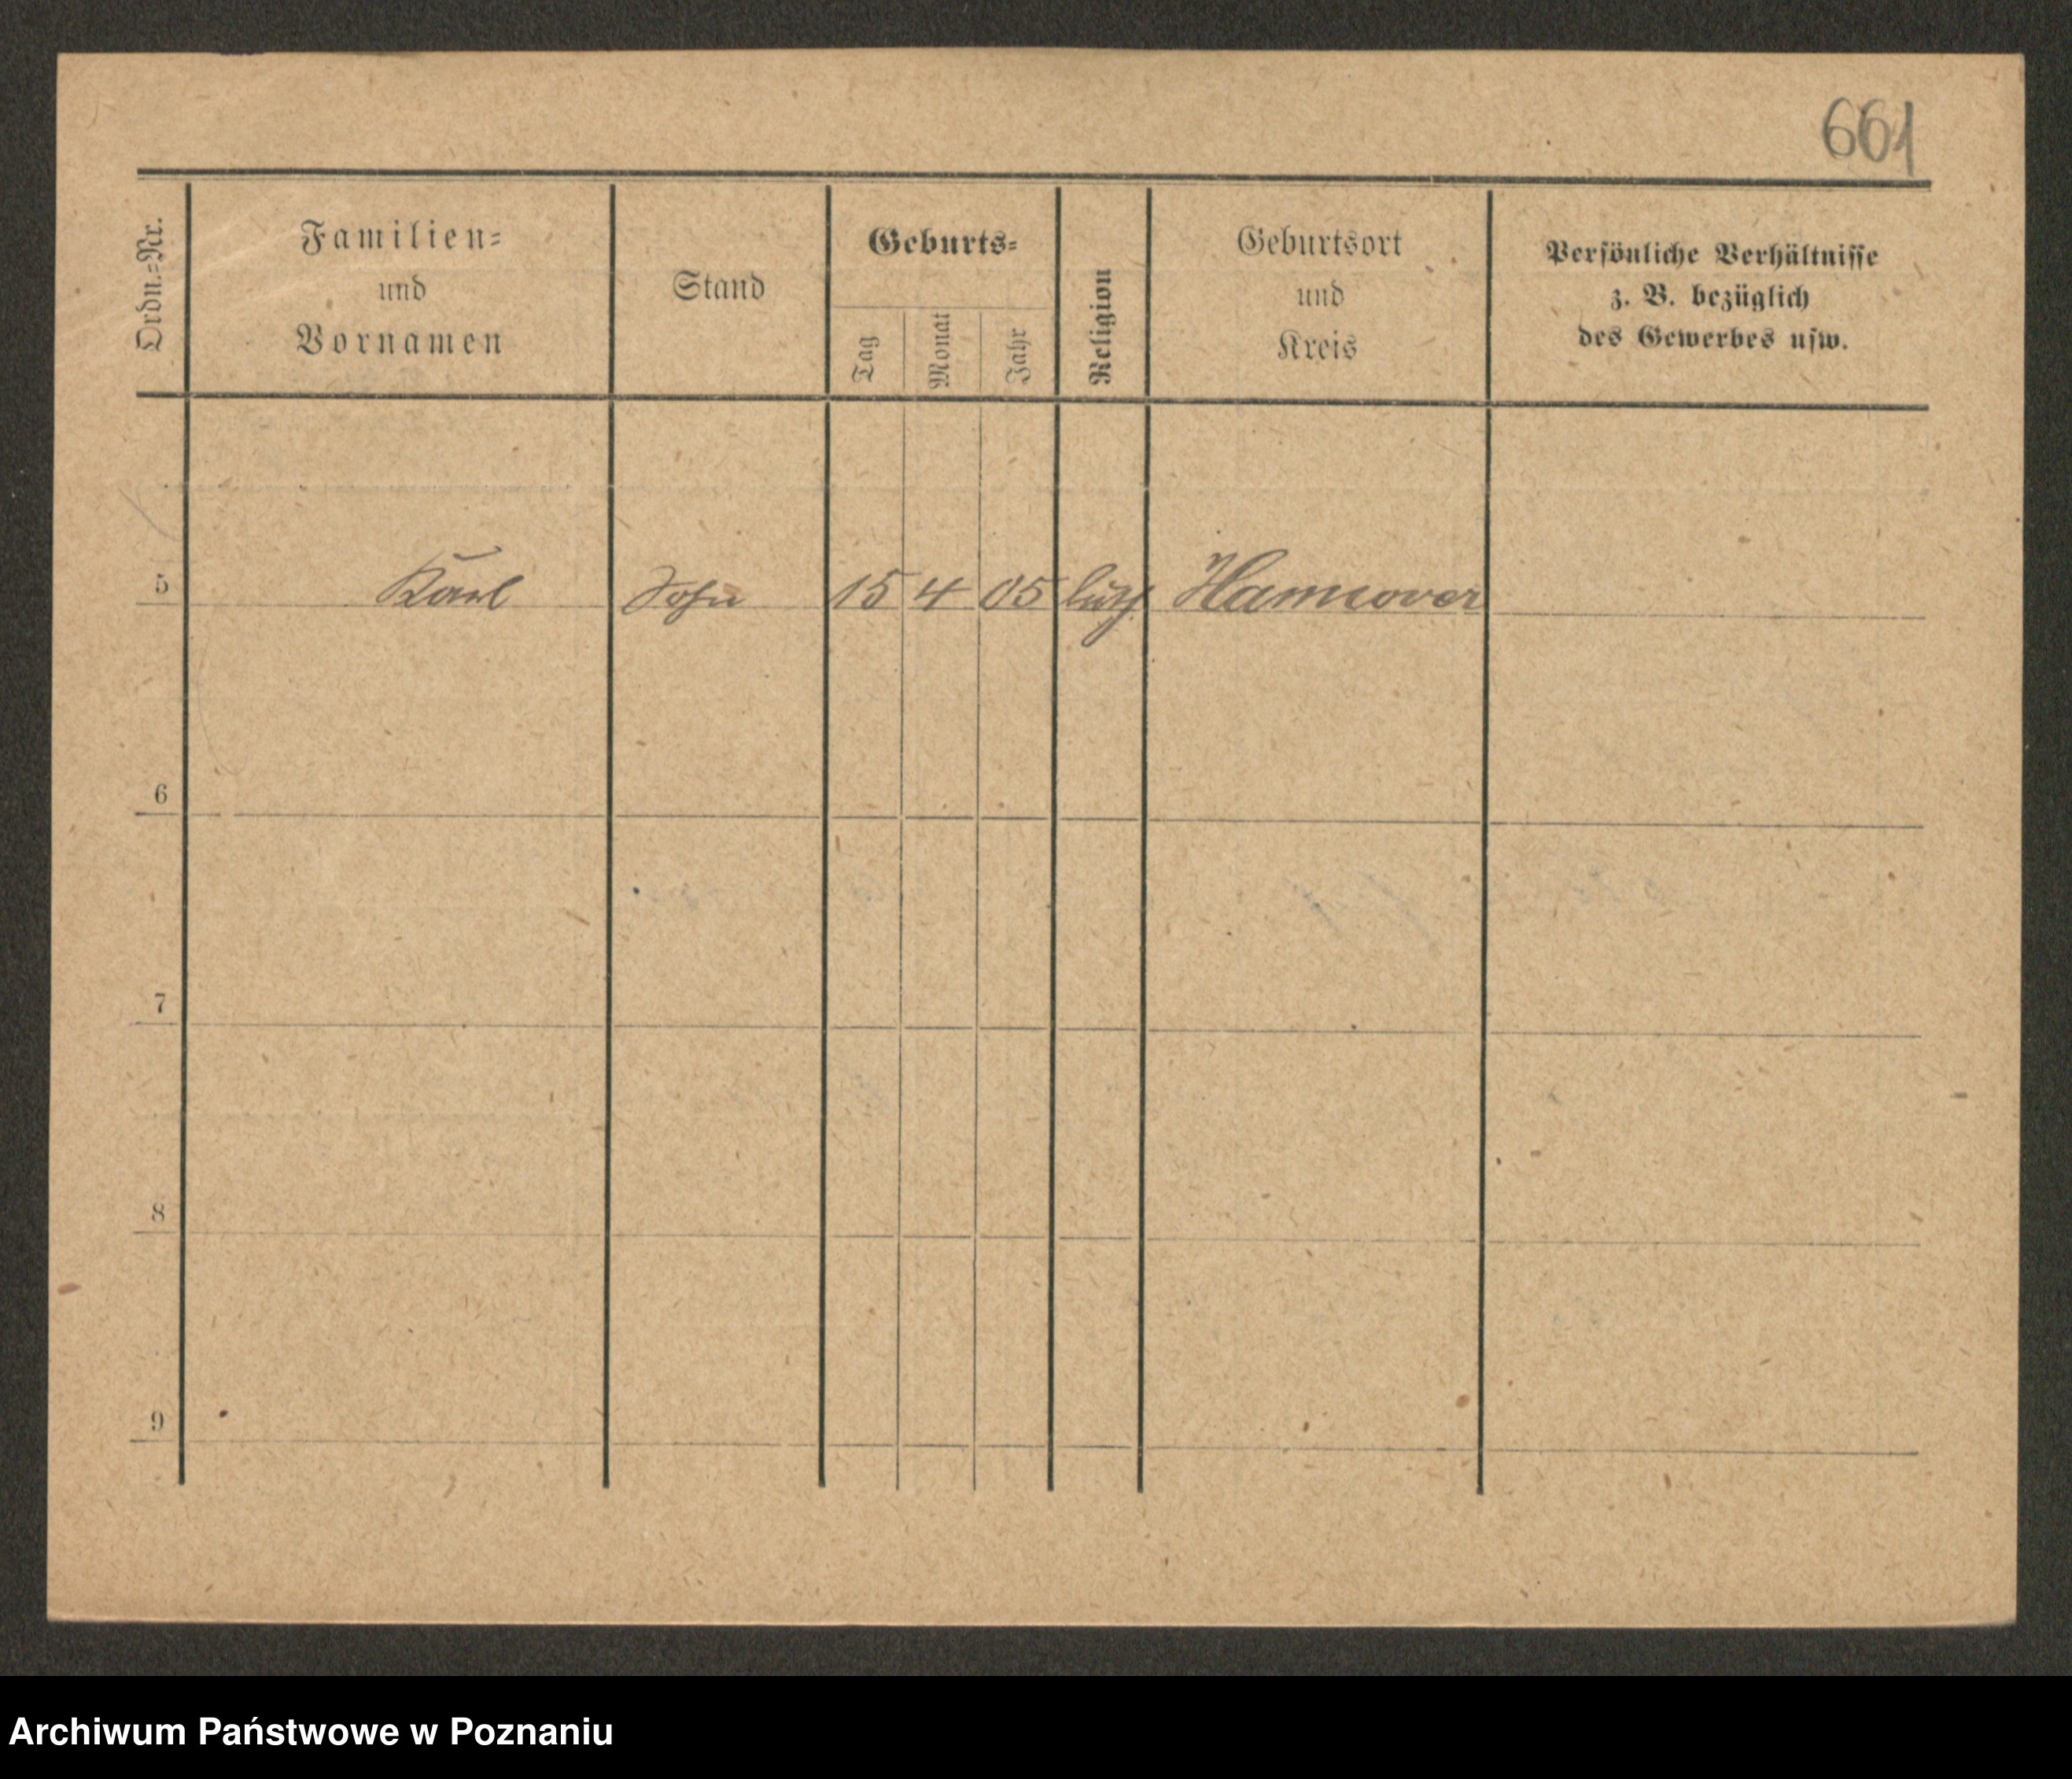 661
Ordn.=Nr.
Familien=
und
Vornamen
Stand
Geburts=
Tag
Monat
Jahr
Religion
Geburtsort
und
Kreis
Persönliche Verhältnisse
z. B. bezüglich
des Gewerbes usw.
5 Karl Sohn 15 4 05 luth. Hannover
6
7
8
9
Archiwum Państwowe w Poznaniu